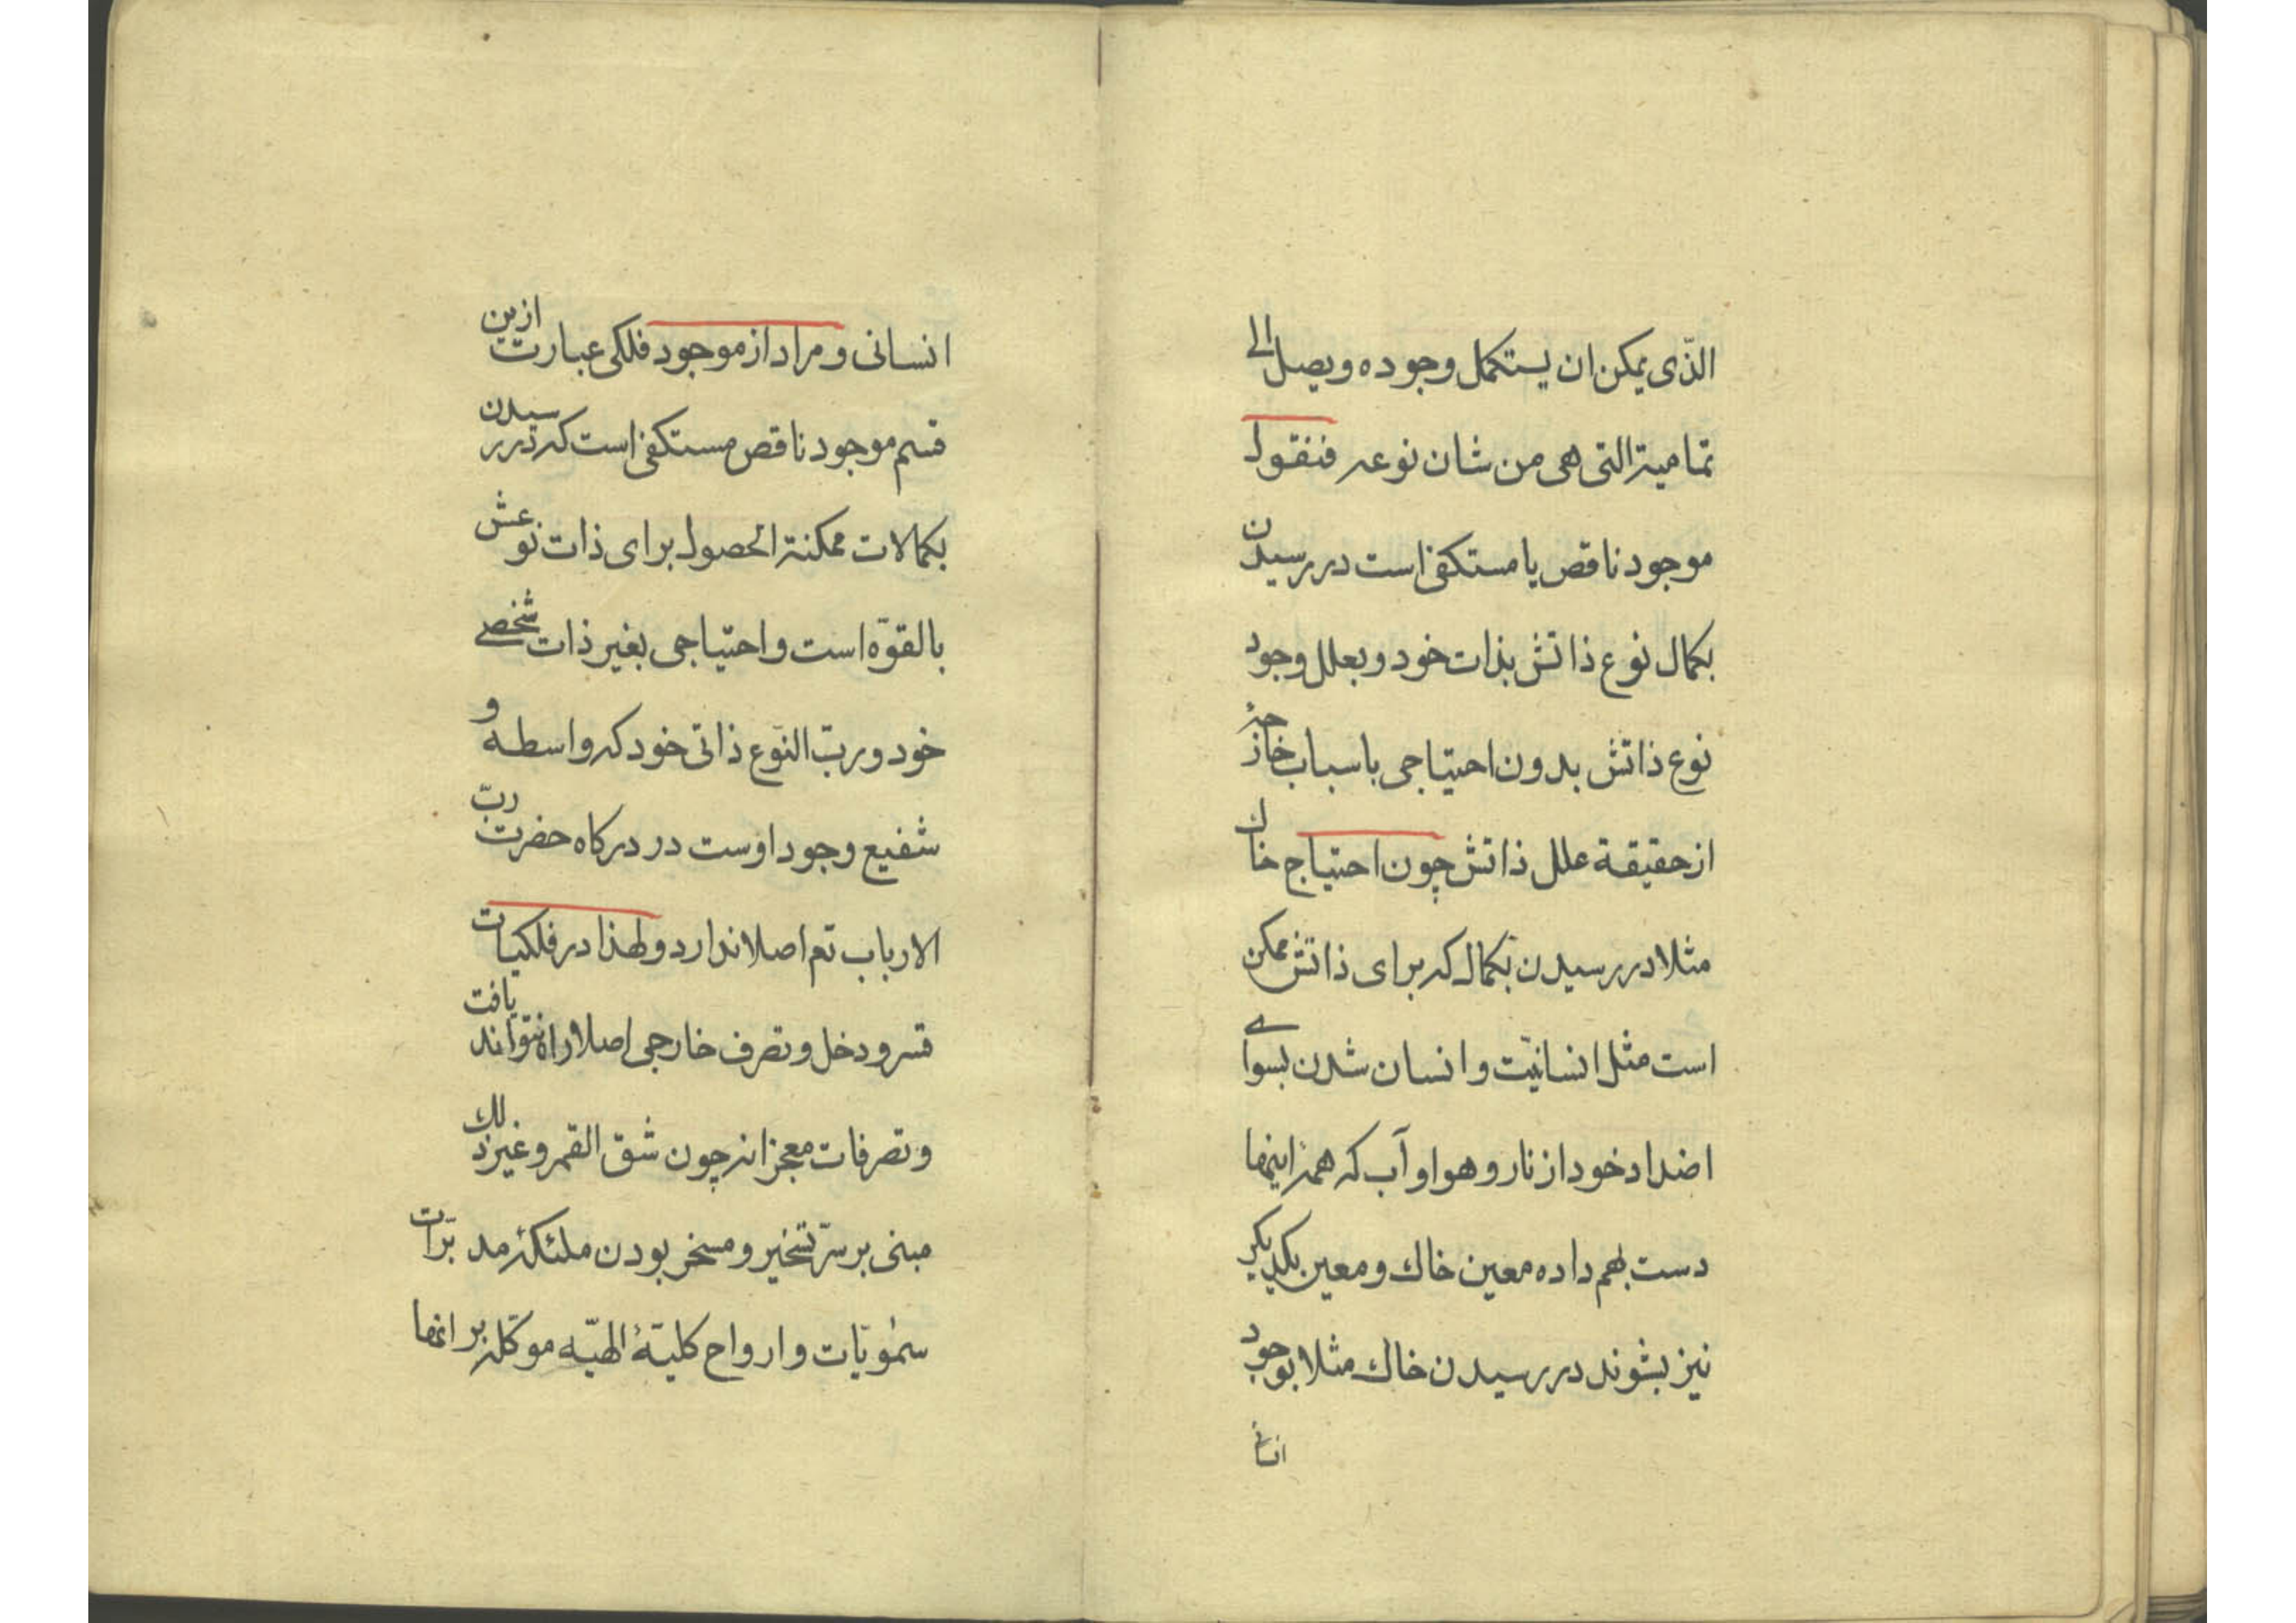 الّذی یمکن ان یستکمل وجوده ویصل الی
تمامیته التی هی من شان نوعه فنقول
موجود ناقص یا مستکفی است در رسیدن
بکمال نوع ذاتش بذات خود و بعلل وجود
نوع ذاتش بدون احتیاجی باسباب خارجه
از حقیقة علل ذاتش چون احتیاج خاك
مثلا در رسیدن بکمال که برای ذاتش ممکن
است مثل انسانیّت و انسان شدن بسوای
اضداد خود از نار و هوا و آب که همه اینها
دست بهم داده معین خاك و معین یکدیگر
نیز بشوند در رسیدن خاك مثلا بوجود
انسانی
انسانی و مراد از موجود فلکی عبارت ازین
قسم موجود ناقص مستکفی است که در رسیدن
بکمالات ممکنة الحصول برای ذات نوعش
بالقوّه است و احتیاجی بغیر ذات شخصی
خود و ربّ النوع ذاتی خود که واسطه و
شفیع وجود اوست در درکاه حضرت ربّ
الارباب تم اصلا ندارد و لهذا در فلکیات
قسر و دخل و تصرف خارجی اصلا راه نتواند یافت
و تصرفات معجزانه چون شق القمر و غیر ذلك
مبنی بر سرّ تسخیر و مسخر بودن ملئکهٔ مدبّرات
سمٰویّات و ارواح کلیّهٔ الهیّه موکّله بر انها